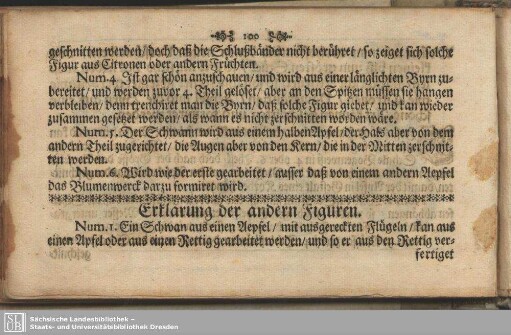 100
geschnitten werden/ doch/ daß die Schlußbänder nicht berühret/ so zeiget sich solche
Figur aus Citronen oder andern Früchten.
Num. 4. Ist gar schön anzuschauen/ und wird aus einer länglichten Byrn zu-
bereitet/ und werden zuvor 4. Theil gelöset/ aber an den Spitzen müssen sie hangen
verbleiben/ dann trenchiret man die Byrn/ daß solche Figur giebet/ und kan wieder
zusammen gesetzet werden/ als wann es nicht zerschnitten worden wäre.
Num. 5. Der Schwann wird aus einem halben Apfel/ der Hals aber von dem
andern Theil zugerichtet/ die Augen aber von den Kern/ die in der Mitten zerschnit-
ten werden.
Num. 6. Wird wie der erste gearbeitet/ ausser daß von einem andern Aepfel
das Blumenwerck darzu formiret wird.
Erklärung der andern Figuren.
Num. 1. Ein Schwan aus einen Aepfel/ mit ausgereckten Flügeln/ kan aus
einen Apfel oder aus einen Rettig gearbeitet werden/ und so er aus den Rettig ver-
fertiget
SLUB
Sächsische Landesbibliothek –
Staats- und Universitätsbibliothek Dresden